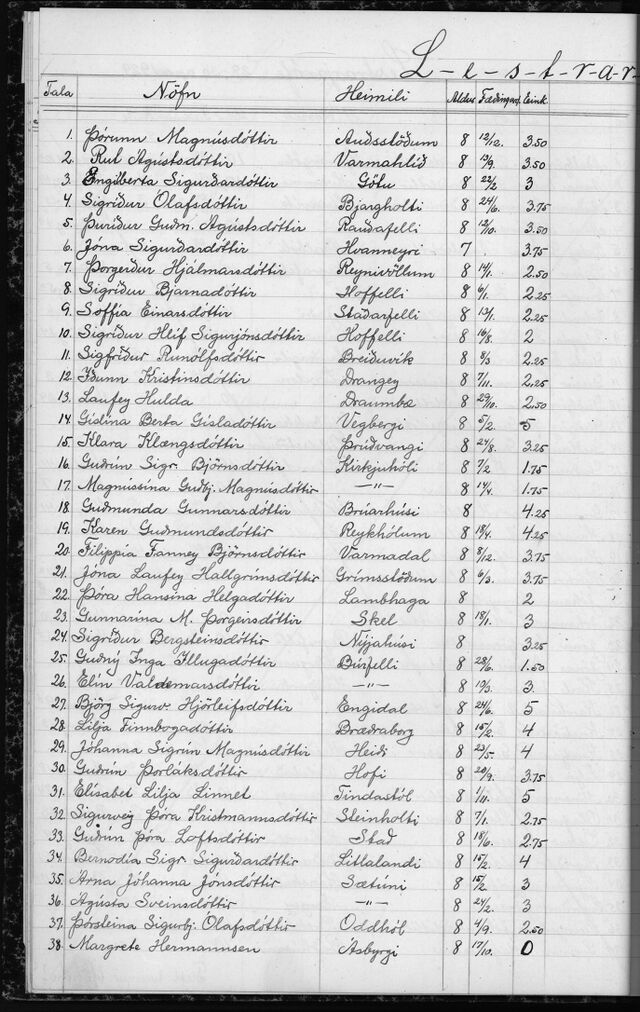 L-e-s-t-r-a-r-
Tala Nöfn Heimili Aldur Fæðingard. Eink
1. Þórunn Magnúsdóttir Auðsstöðum 8 12/12. 3.50
2. Rut Ágústsdóttir Varmahlíð 8 13/9. 3.50
3. Engilberta Sigurðardóttir Götu 8 22/2 3
4. Sigríður Ólafsdóttir Bjargholti 8 24/6. 3.75
5. Þuríður Guðm. Ágústsdóttir Rauðafelli 8 12/10. 3.50
6. Jóna Sigurðardóttir Hvanneyri 7 3.75
7. Þorgerður Hjálmarsdóttir Reynivöllum 8 14/1. 2.50
8. Sigríður Bjarnadóttir Hoffelli 8 6/1. 2.25
9. Soffía Einarsdóttir Staðarfelli 8 13/1. 2.25
10. Sigríður Hlíf Sigurjónsdóttir Hoffelli 8 16/8. 2
11. Sigfríður Runólfsdóttir Breiðuvík 8 8/3 2.25
12. Iðunn Kristinsdóttir Drangey 8 7/11. 2.25
13. Laufey Hulda Draumbæ 8 29/10. 2.50
14. Gíslína Berta Gísladóttir Vegbergi 8 5/2. 5
15. Klara Klængsdóttir Þrúðvangi 8 24/8. 3.25
16. Guðrún Sigr. Björnsdóttir Kirkjuhóli 8 7/2 1.75
17. Magnússína Guðbj. Magnúsdóttir —"— 8 14/4. 1.75
18. Guðmunda Gunnarsdóttir Brúarhúsi 8 4.25
19. Karen Guðmundsdóttir Reykhólum 8 18/4. 4.25
20. Filippía Fanney Björnsdóttir Varmadal 8 8/12. 3.75
21. Jóna Laufey Hallgrímsdóttir Grímsstöðum 8 6/3. 3.75
22. Þóra Hansína Helgadóttir Lambhaga 8 2
23. Gunnarína M. Þorgeirsdóttir Skel 8 18/1. 3
24. Sigríður Bergsteinsdóttir Nýjahúsi 8 3.25
25. Guðný Inga Illugadóttir Búrfelli 8 28/6. 1.50
26. Elín Valdemarsdóttir —"— 8 19/3. 3.
27. Björg Sigurv Hjörleifsdóttir Engidal 8 24/6. 5
28. Lilja Finnbogadóttir Bræðraborg 8 15/2. 4
29. Jóhanna Sigrún Magnúsdóttir Heiði 8 23/5. 4
30. Guðrún Þorláksdóttir Hofi 8 20/9. 3.75
31. Elísabet Lilja Linnet Tindastól 8 1/11. 5
32. Sigurveig Þóra Kristmannsdóttir Steinholti 8 7/1. 2.75
33. Guðrún Þóra Loftsdóttir Stað 8 18/6. 2.75
34. Bernódía Sigr Sigurðardóttir Litlalandi 8 15/2. 4
35. Árna Jóhanna Jónsdóttir Sætúni 8 15/2. 3
36. Ágústa Sveinsdóttir —"— 8 24/2. 3
37. Þórsteina Sigurbj. Ólafsdóttir Oddhól 8 4/9. 2.50
38. Margrete Hermannsen Ásbyrgi 8 17/10. 0